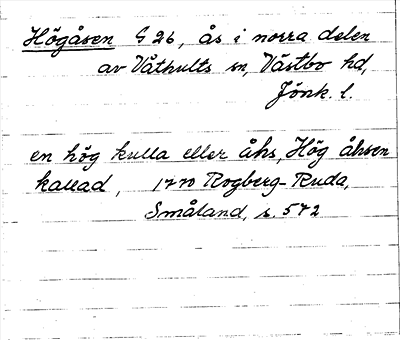 Högåsen G 26, ås i norra delen
av Våthults sn, Västbo hd,
Jönk. l.
en hög kulla eller åhs, Hög åhsen
kallad, 1770 Rogberg-Ruda,
Småland, s. 572